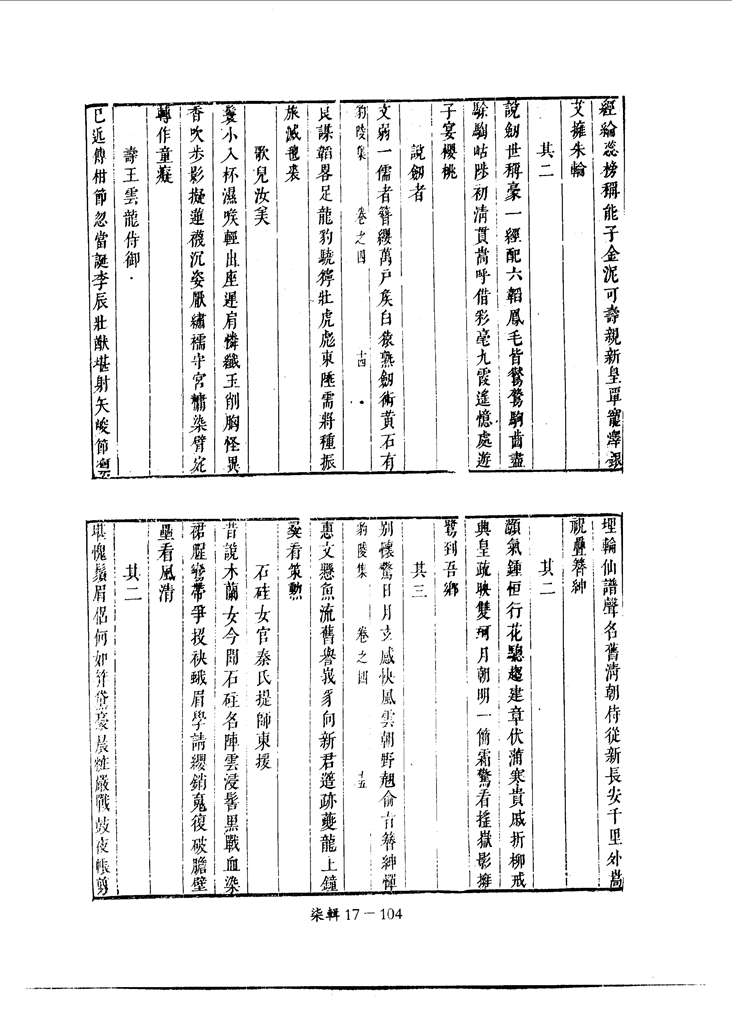 經綸蕊榜稱能子金泥可壽親新皇單寵澤銀
艾擁朱輪
其二
說劒世稱豪一經配六韜鳳毛皆鸑鷟駒齒盡
騄駬岵陟初清貫嵩呼借彩毫九霞遙憶處遊
子宴櫻桃
說劒者
文弱一儒者簪纓萬戶矦白猿熟劒術黃石有
豹陵集 卷之四 十四
良謀韜畧足龍豹驍獰壯虎彪東陲需將種振
旅滅氊裘
歌兒汝美
鬟小入杯濕喉輕出座遲肩憐纖玉削胸怪異
香吹步影擬蓮襪沉姿厭繡襦守宮慵染臂宛
轉作童癡
壽王雲龍侍御
已近傳柑節忽當誕李辰壯猷堪射矢峻節凜
埋輪仙譜聲名舊清朝侍從新長安千里外嵩
祝疊簪紳
其二
顥氣鍾恒行花驄趨建章伏蒲寒貴戚折柳戒
興皇疏映雙珂月朝明一簡霜驚看搖嶽影擁
鷺到吾鄉
其三
別懷驚日月支感快風雲朝野翹俞吉簪紳憚
豹陵集 卷之四 十五
惠文懸魚流舊譽峩豸向新君簉跡夔龍上鐘
彝看策勳
石砫女官秦氏提師東援
昔說木蘭女今聞石砫名陣雲浸髻黑戰血染
裙腥鸞帶爭投袂蛾眉學請纓銷䰟復破膽壁
壘看風清
其二
堪愧鬚眉侶何如笄黛豪晨粧嚴戰鼓夜帳剪
柒輯 17－104